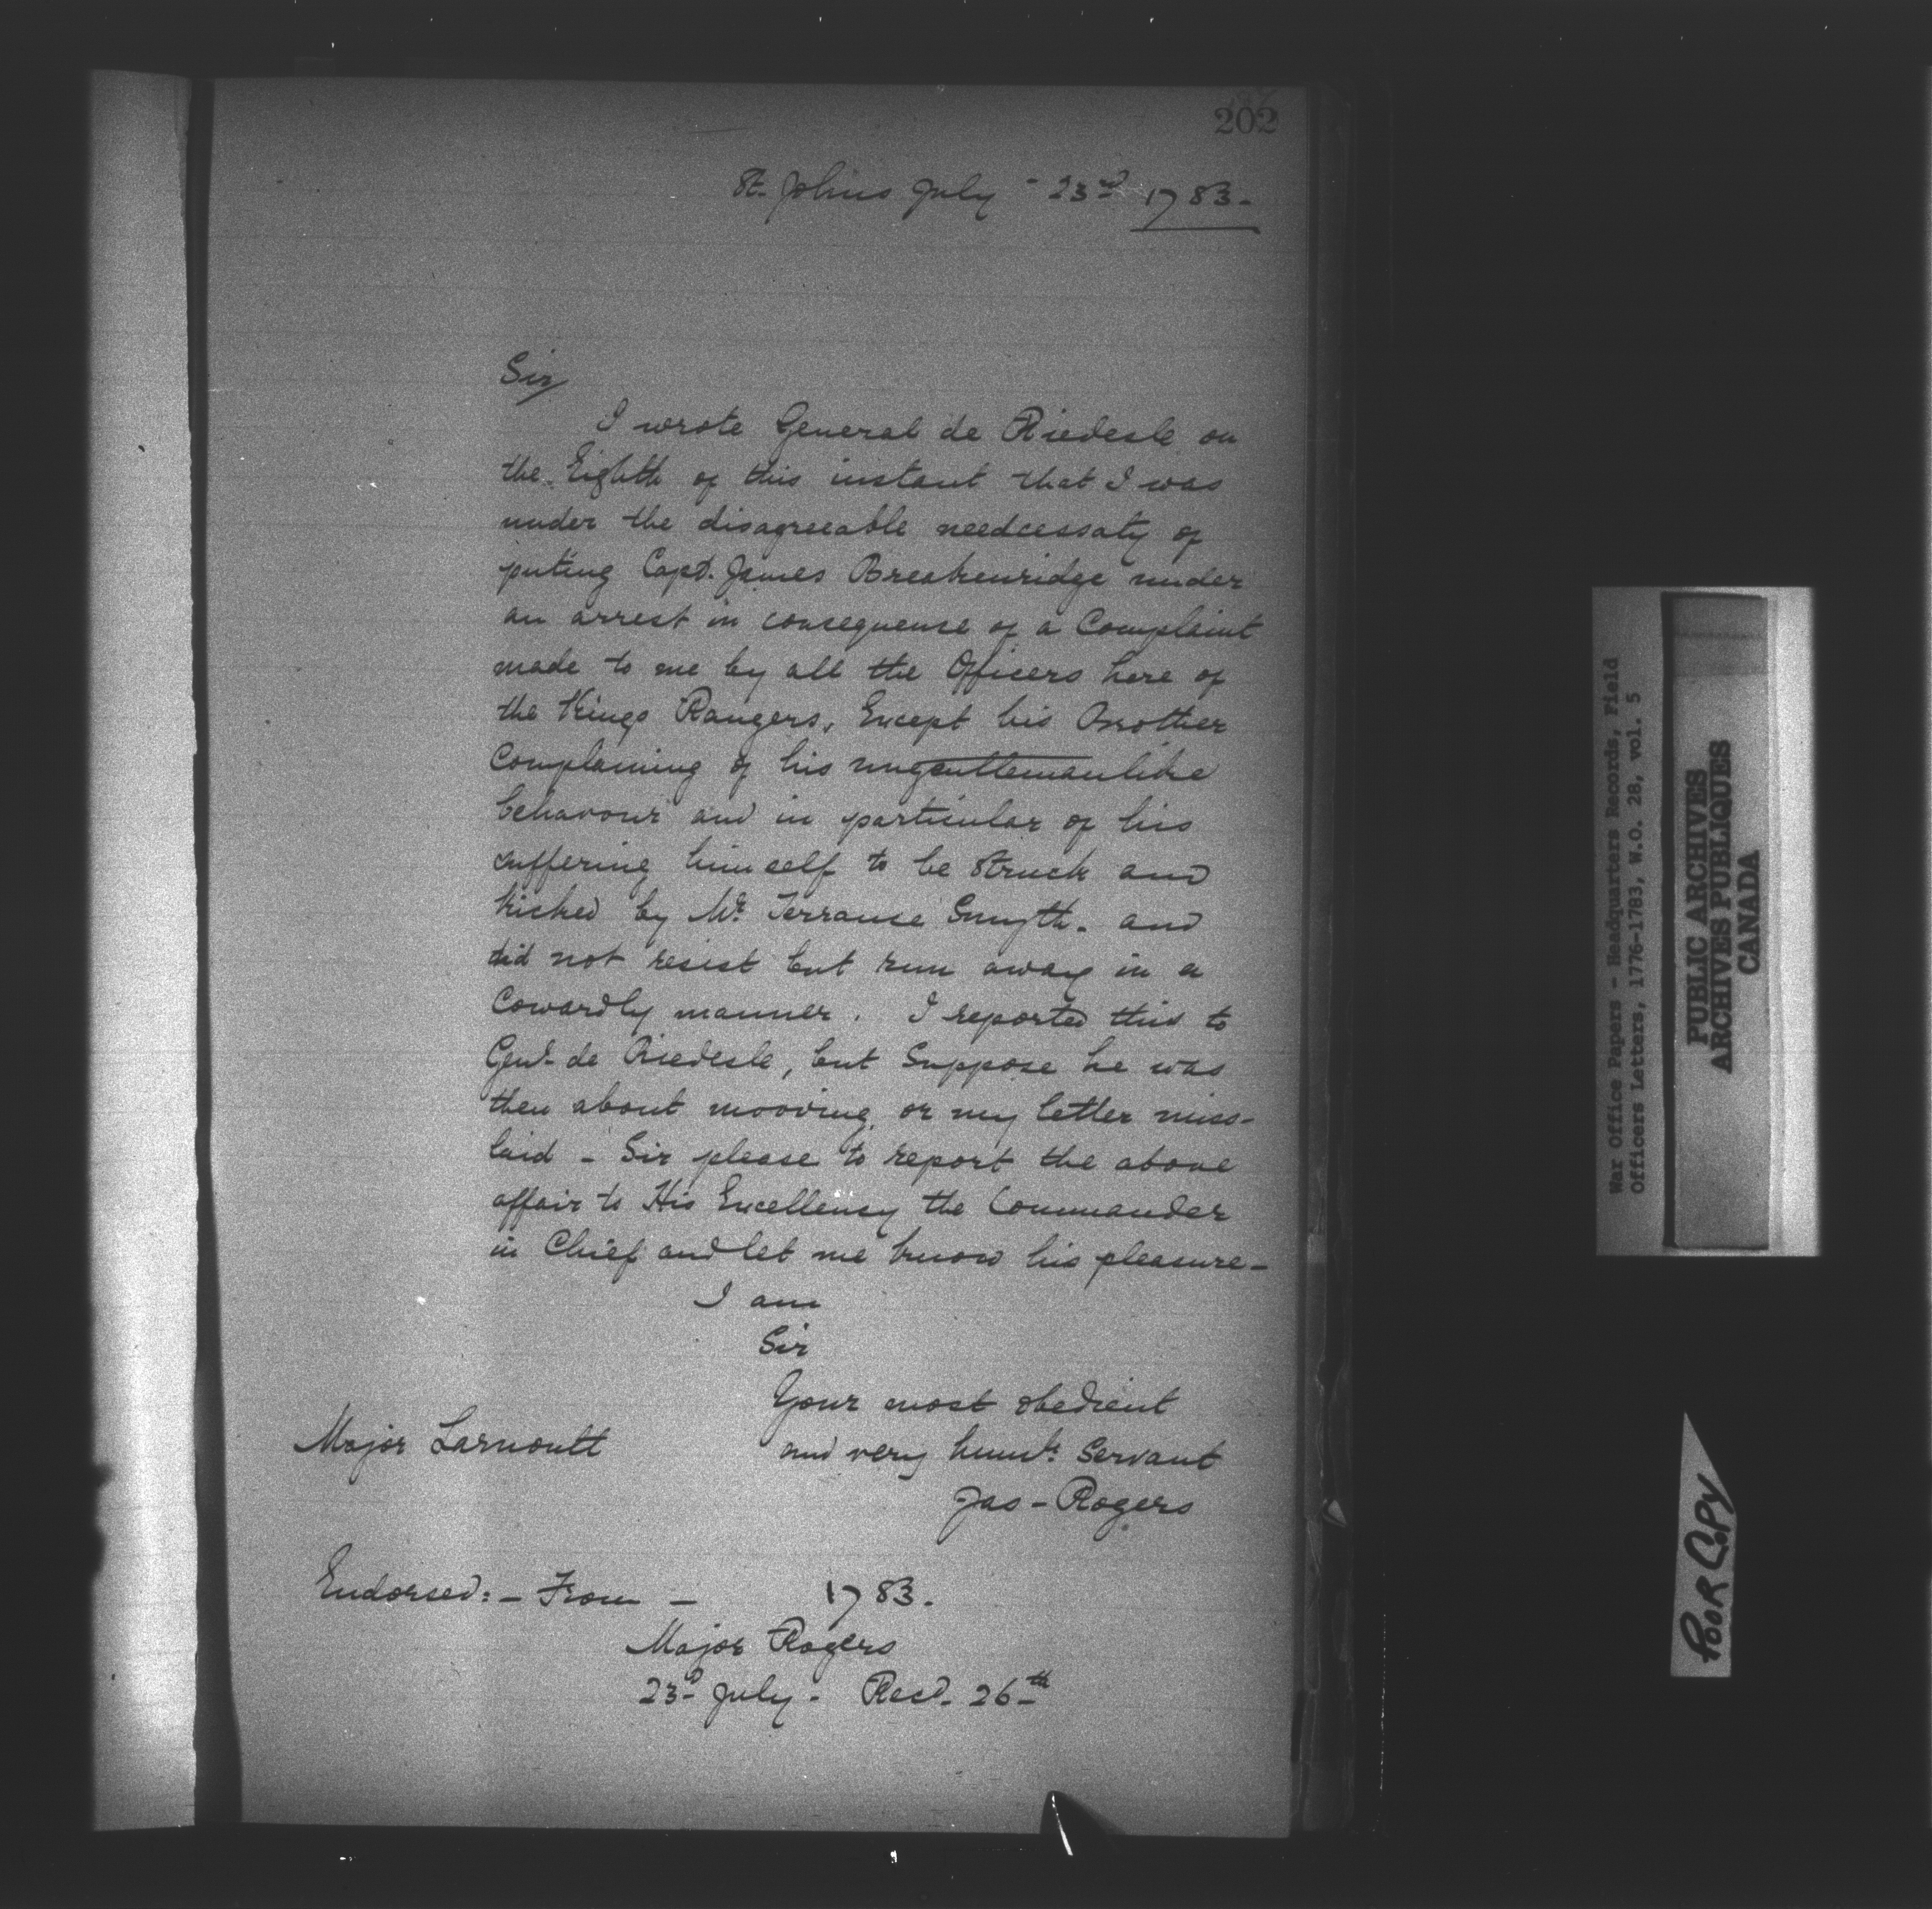 202
St. Johns July - 23rd 1783-
Sir
I wrote General de Riedesle on
the Eighth of this instant that I was
under the disagreeable needcessaty of
puting Capt. James Breakenridge under
an arrest in consequense of a Complaint
made to me by all the Officers here of
the Kings Rangers, Except his Brother
Complaining of his ungentlemanlike
behavour and in particular of his
suffering himself to be Struck and
kicked by Mr. Terrance Smyth. and
did not resist but run away in a
Cowardly manner. I reported this to
Genl. de Riedesle, but Suppose he was
then about mooving, or my letter miss-
laid - Sir please to report the above
affair to His Excellency the Commander
in Chief and let me know his pleasure-
I am
Sir
Your most obedient
and very humle. Servant
Jas - Rogers
Major Larnoult
Endorsed: - From - 1783.
Major Rogers
23d July - Recd. 26th
War Office Papers - Headquarters Records, Field
Officers Letters, 1776-1783, W.O. 28, vol. 5
PUBLIC ARCHIVES
ARCHIVES PUBLIQUES
CANADA
POOR COPY